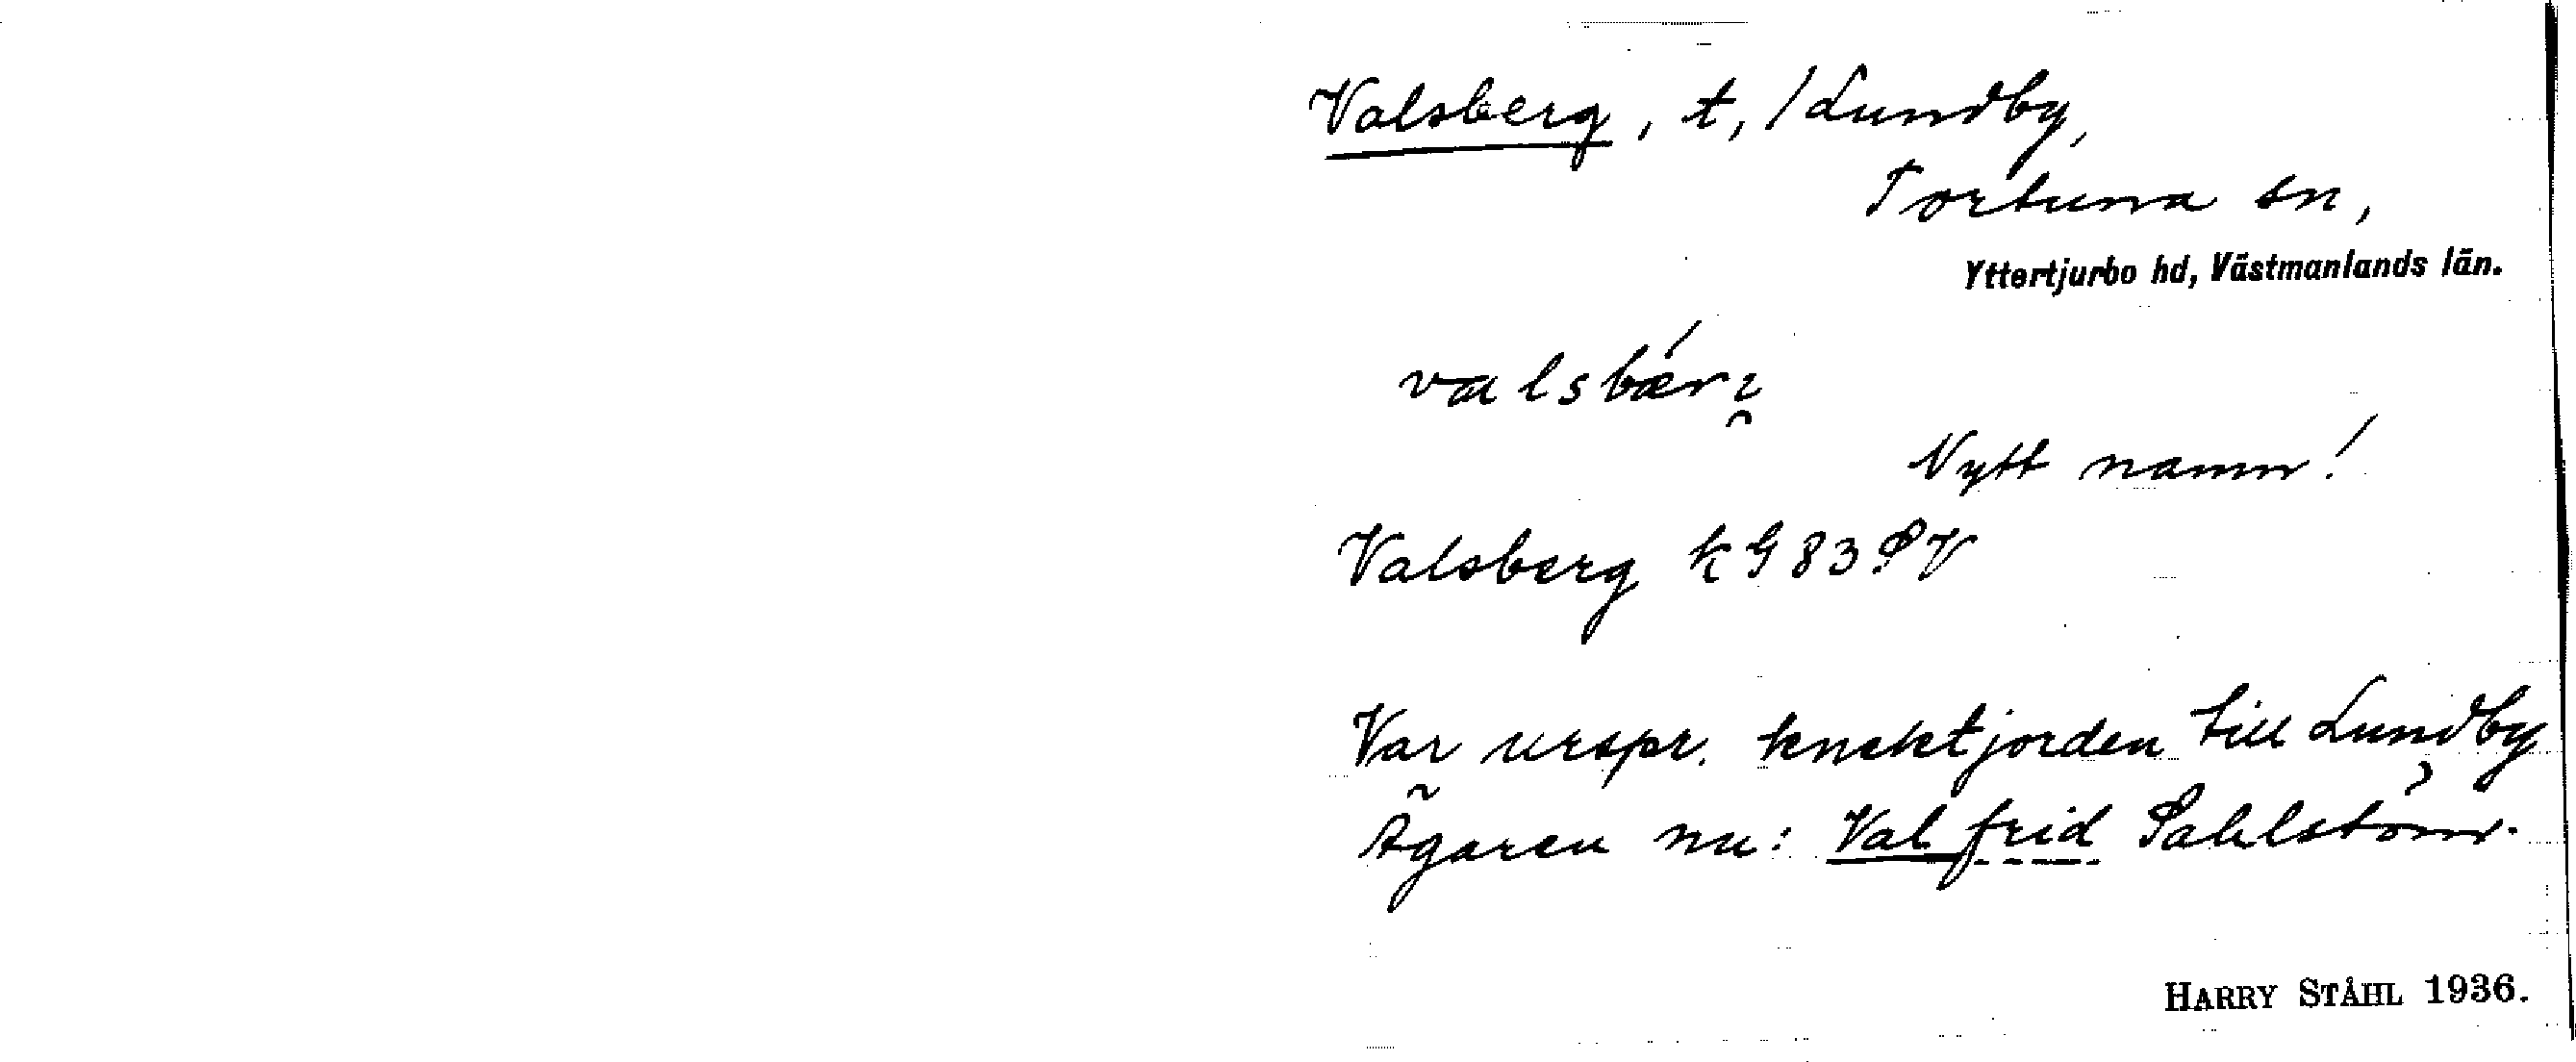 Valsberg, t, /Lundby,
Tortuna sn,
Yttertjurbo hd, Västmanlands län.
Nytt namn!
Valsberg k G 83 SV
Var urspr. knektjorden till Lundby
Ägaren nu: Valfrid Sahlström.
HARRY STÅHL 1936.